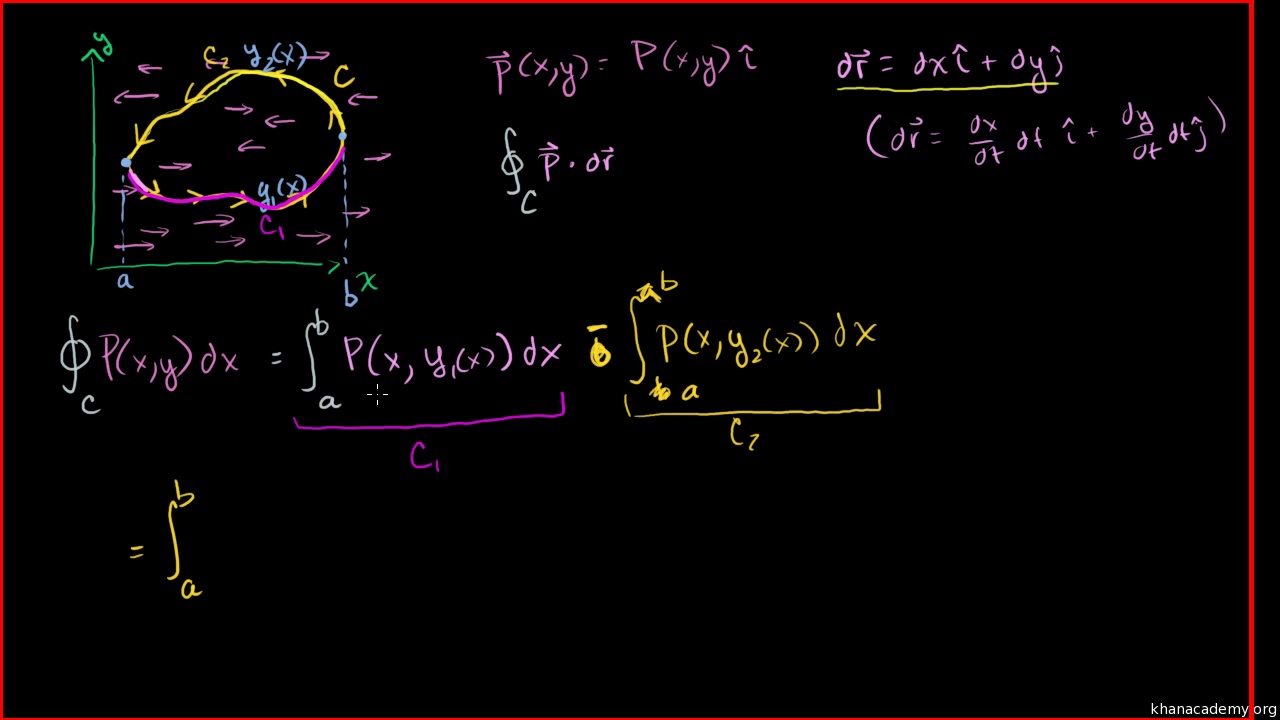 y
C₂ y₂(x)
C
y₁(x)
C₁
a
b x
P⃗(x,y) = P(x,y) î
dr⃗ = dx î + dy ĵ
(dr⃗ = dx/dt dt î + dy/dt dt ĵ)
∮_C P⃗ · dr⃗
∮_C P(x,y) dx = ∫_a^b P(x, y₁(x)) dx - ∫_a^b P(x, y₂(x)) dx
C₁ C₂
= ∫_a^b
khanacademy.org